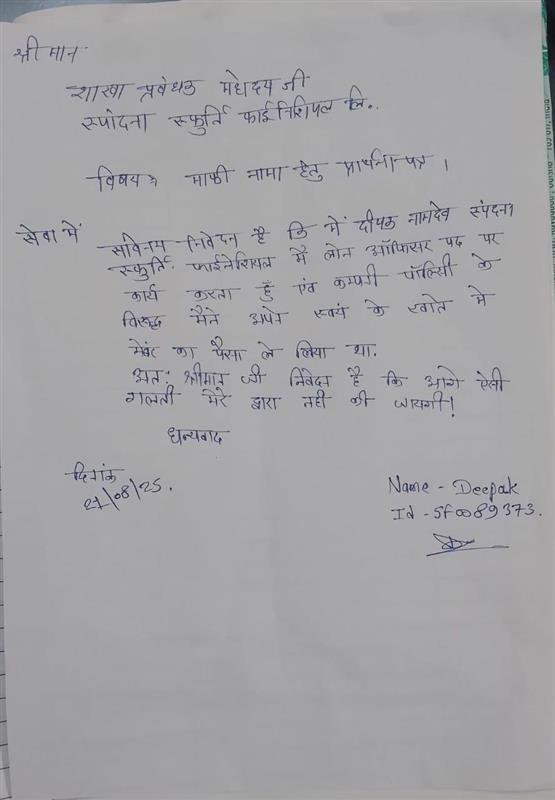 श्रीमान
शाखा प्रबंधक महोदय जी
स्पंदना स्फुर्ति फाईनेंशियल लि..
विषयः माफी नामा हेतु प्रार्थना पत्र ।
सेवा में
सविनय निवेदन है कि में दीपक नामदेव स्पंदना
स्फुर्ति फाईनेंशियल में लोन ऑफिसर पद पर
कार्य करता हूँ एंव कम्पनी पॉल्सिी के
विरूद्ध मैने अपने स्वयं के खाते मे
मेंबर का पैसा ले लिया था.
अतः श्रीमान जी निवेदन है कि आगे ऐसी
गलती मेरे द्वारा नही की जायगी!
धन्यवाद
दिनांक
27/08/25.
Name - Deepak
Id - SF0089373.